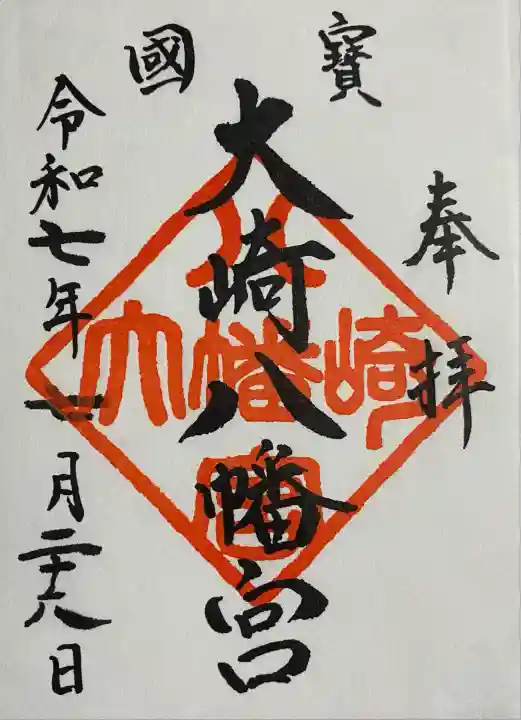 國寶
奉拝
大崎八幡宮
令和七年 月二十八日
八
大幡崎
宮